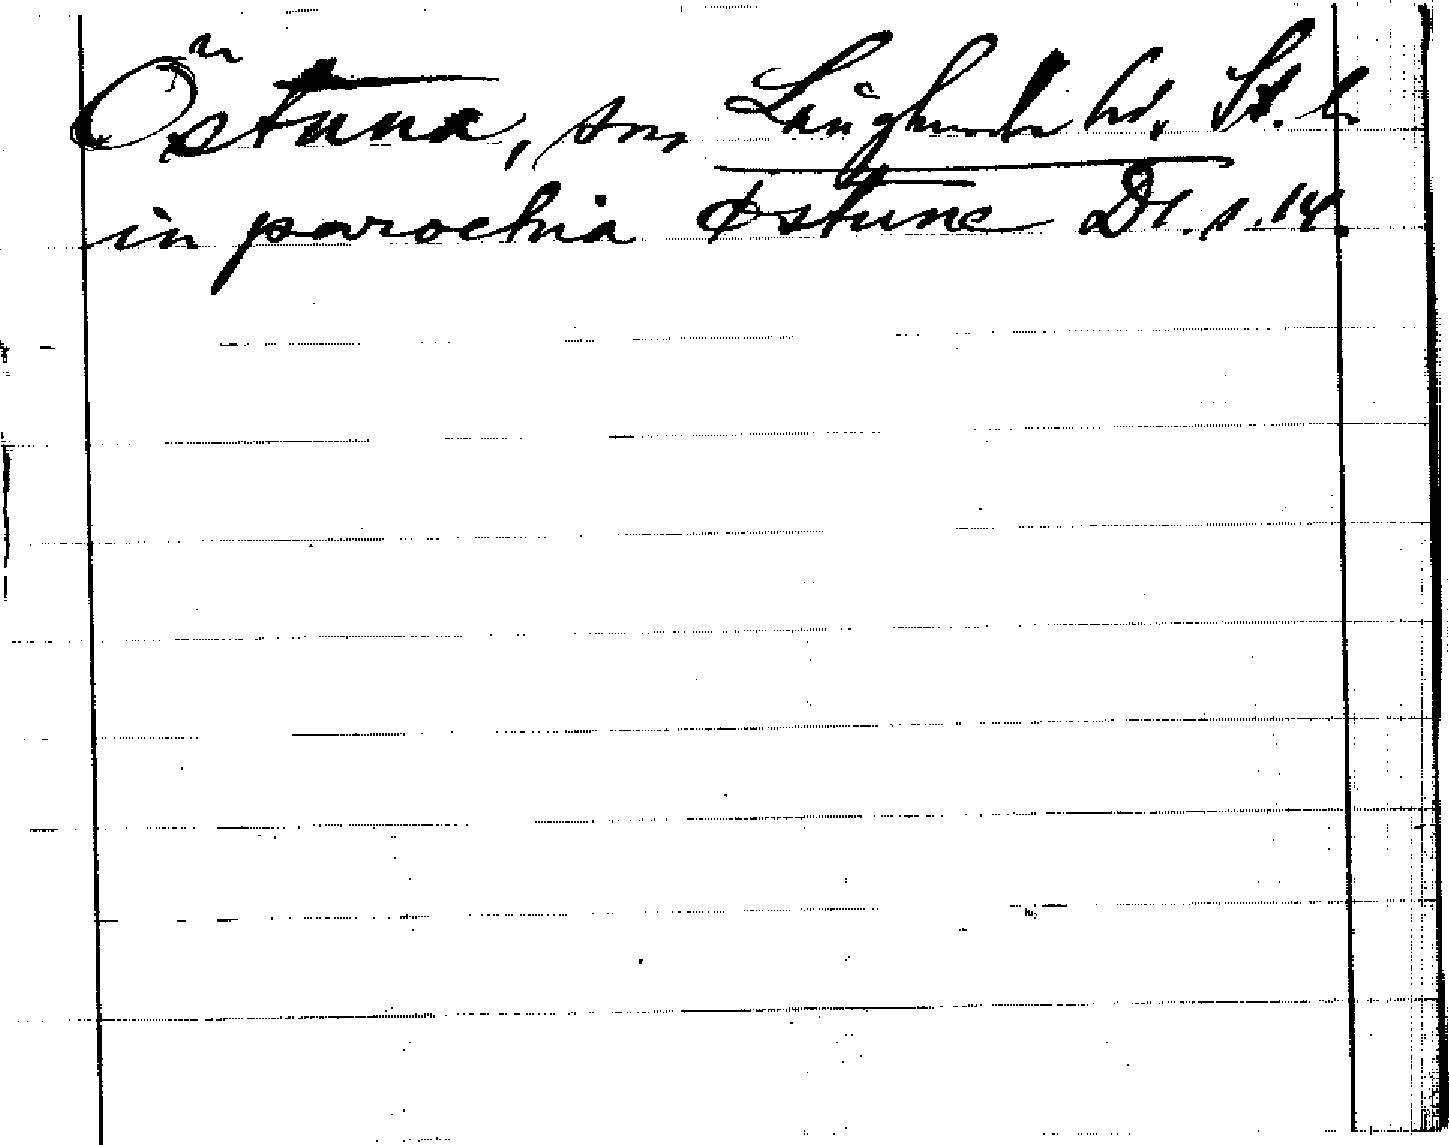 Östuna, sn, Långhundra hd, St. l.
in parochia Østunæ Dl. s. 14.